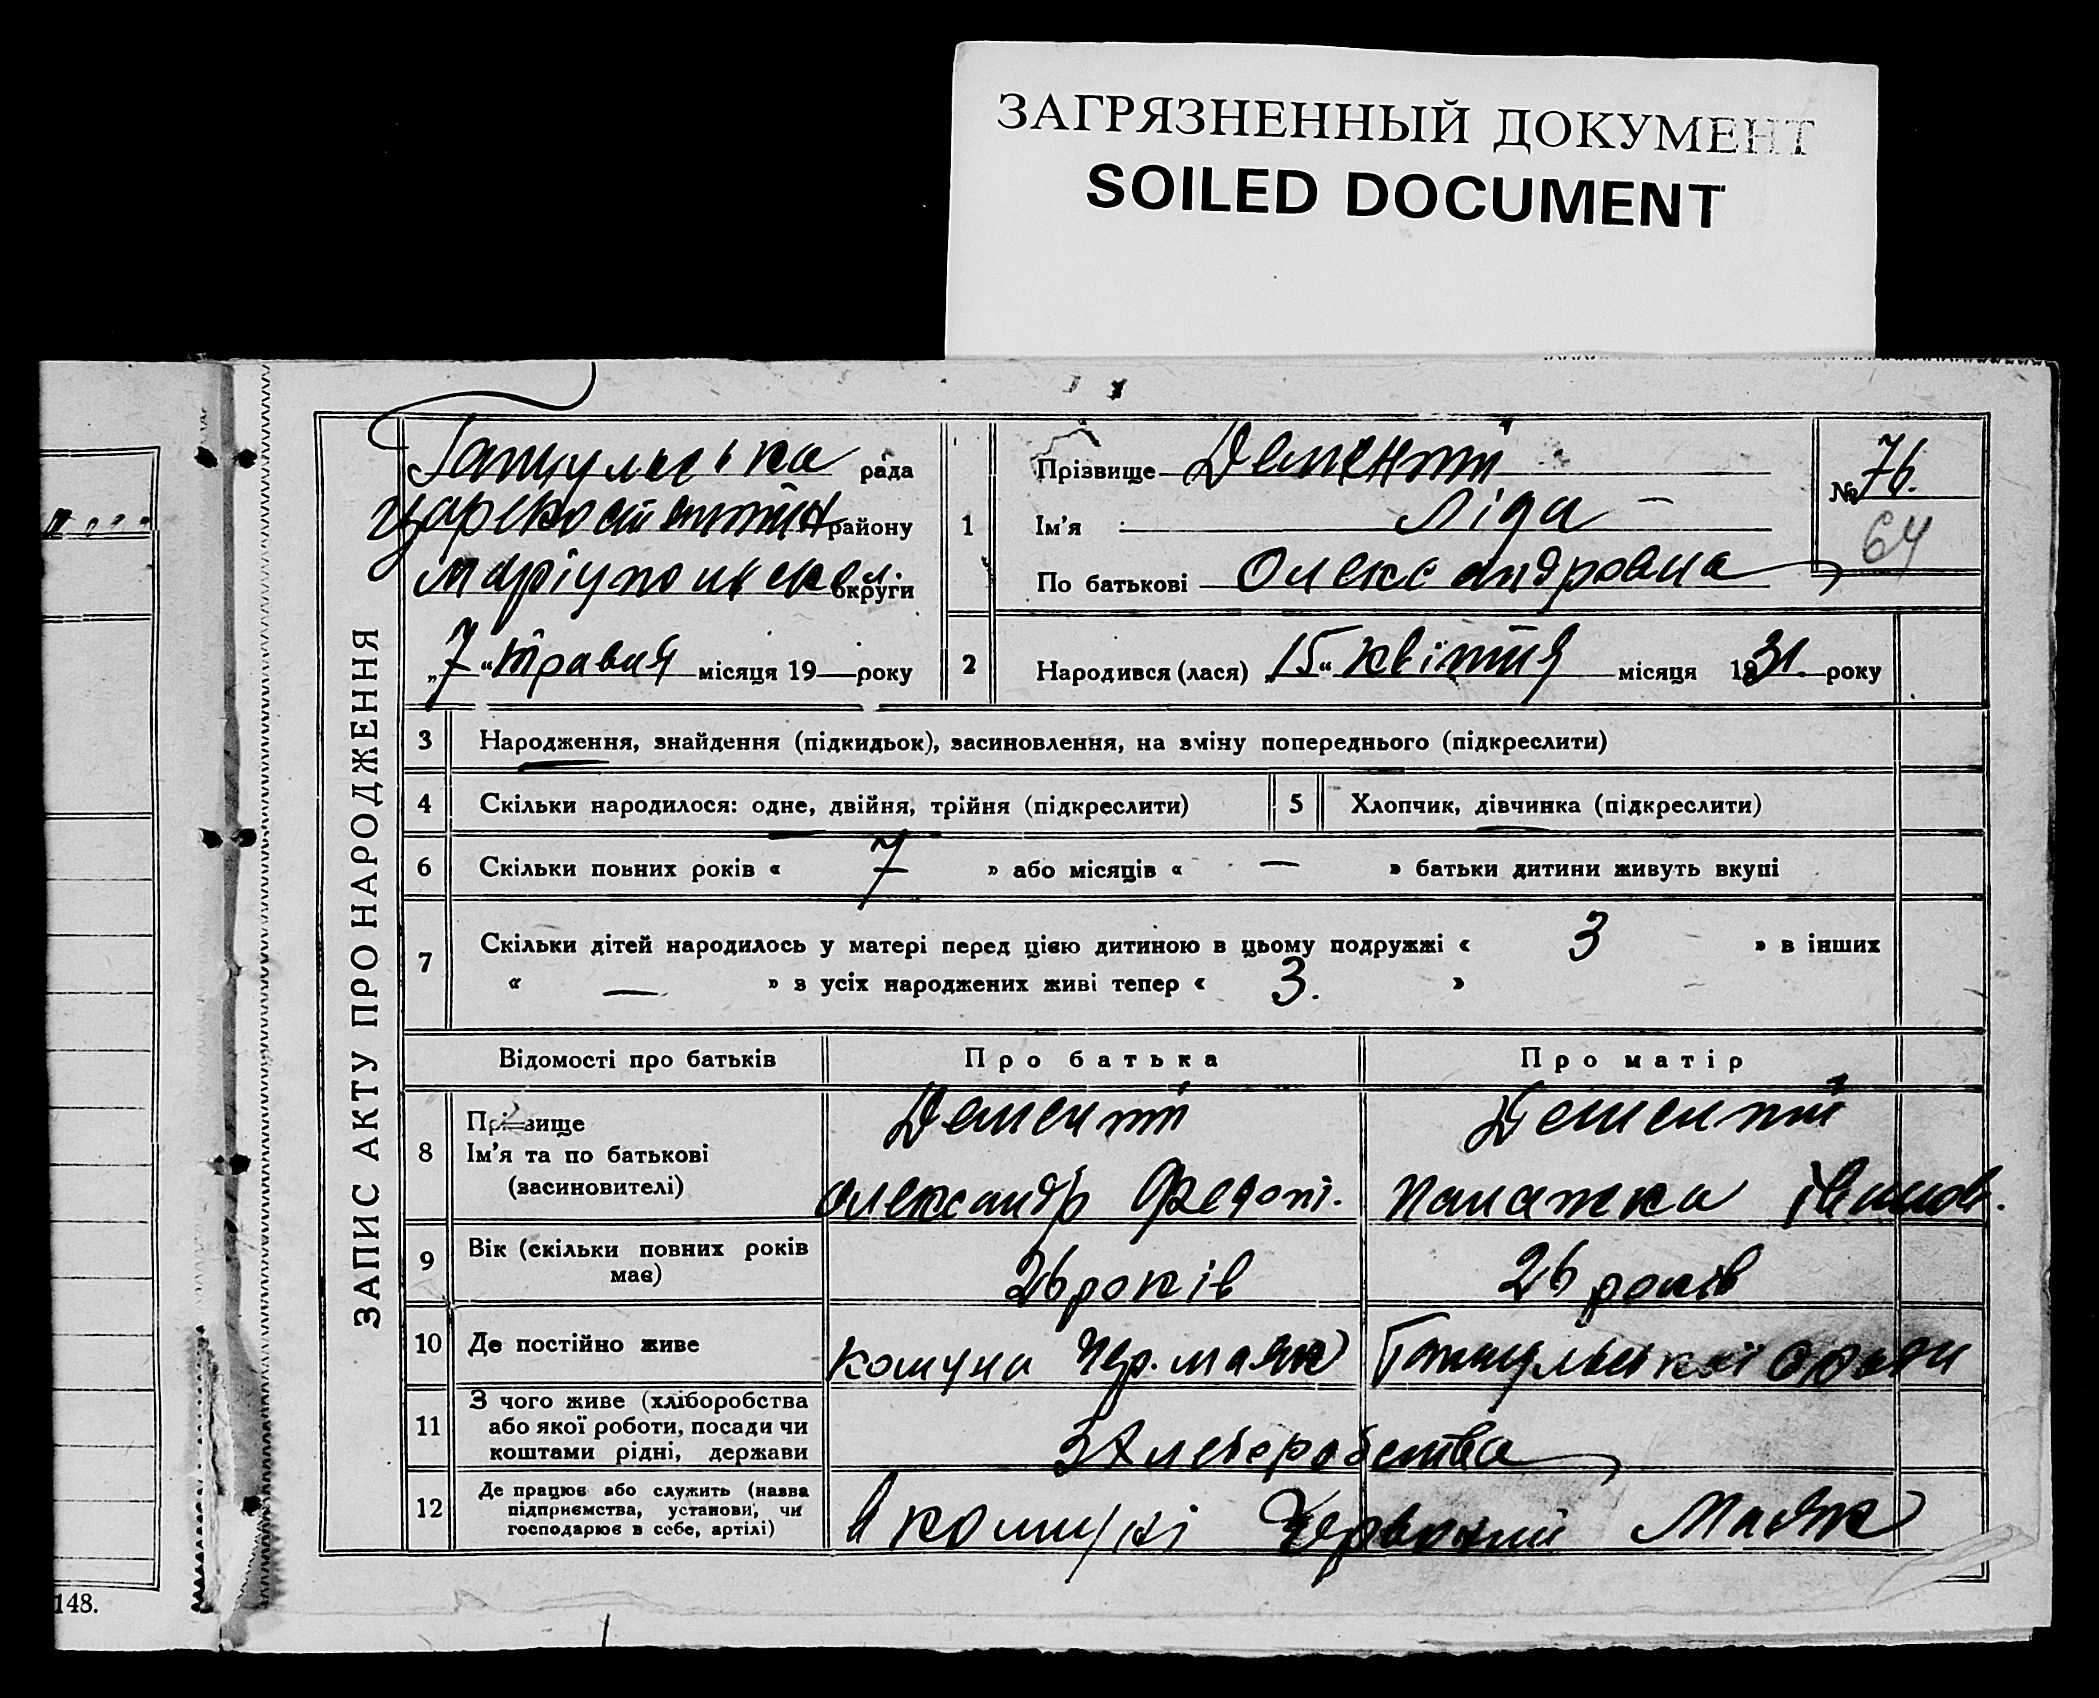 ЗАГРЯЗНЕННЫЙ ДОКУМЕНТ
SOILED DOCUMENT
ЗАПИС АКТУ ПРО НАРОДЖЕННЯ
рада
району
округи
„7“ травня місяця 19 року
1
Прізвище Дементій
Ім'я Ліда —
По батькові Олександровна
№ 76.
64
2 Народився (лася) „15“ квітня місяця 1931. року
3 Народження, знайдення (підкидьок), засиновлення, на зміну попереднього (підкреслити)
4 Скільки народилося: одне, двійня, трійня (підкреслити)
5 Хлопчик, дівчинка (підкреслити)
6 Скільки повних років « 7 » або місяців « — » батьки дитини живуть вкупі
7 Скільки дітей народилось у матері перед цією дитиною в цьому подружжі « 3 » в інших
« — » з усіх народжених живі тепер « 3. »
Відомості про батьків Про батька Про матір
8 Прізвище
Ім'я та по батькові
(засиновителі)
Дементій
Олександр Федоті.
Дементій
Іванов.
9 Вік (скільки повних років
має)
26 років 26 років
10 Де постійно живе комуна Чер. маяк
11 З чого живе (хліборобства
або якої роботи, посади чи
коштами рідні, держави
З хлеборобства
12 Де працює або служить (назва
підприємства, установи, чи
господарює в себе, артілі)
В комуні Червоний Маяк
148.